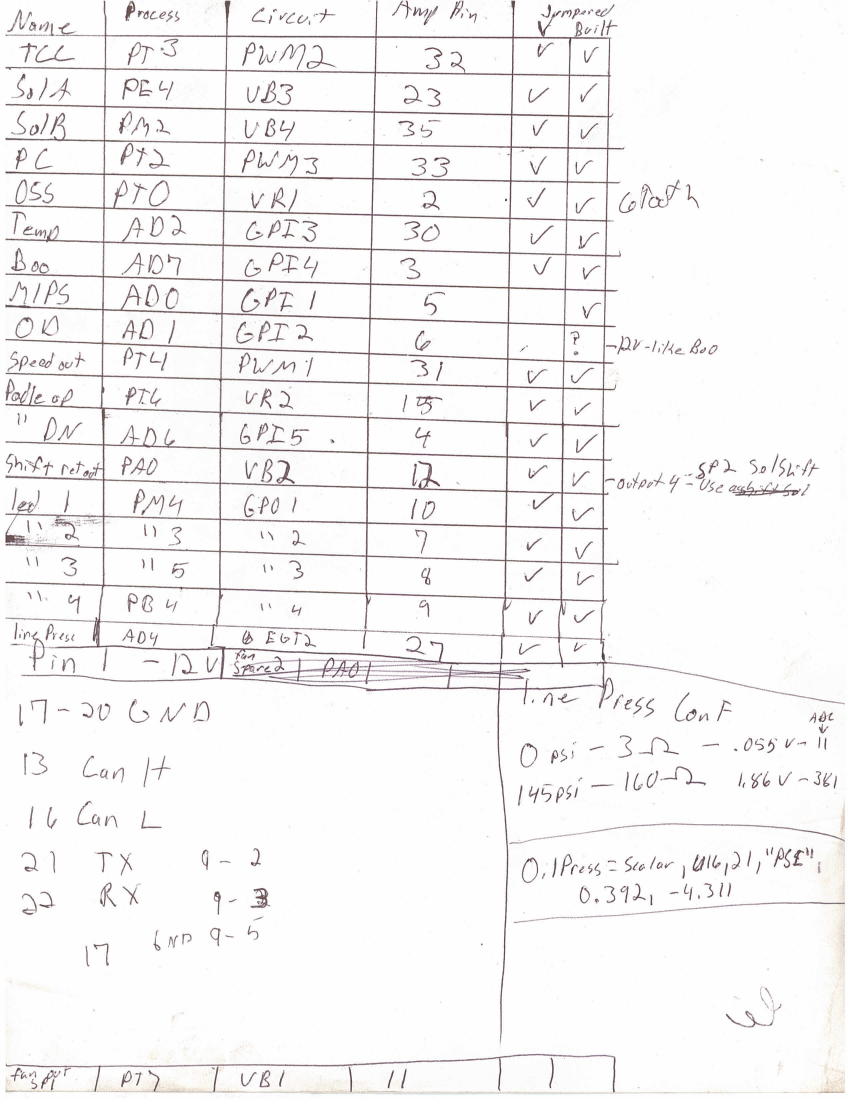 Name Process Circuit Amp Pin Jumpered ✓ Built
TCC PT3 PWM2 32 ✓ ✓
SolA PE4 VB3 23 ✓ ✓
SolB PM2 VB4 35 ✓ ✓
PC PT2 PWM3 33 ✓ ✓
OSS PT0 VR1 2 ✓ ✓ 6Tooth
Temp AD2 GPI3 30 ✓ ✓
Boo AD7 GPI4 3 ✓ ✓
M/PS AD0 GPI1 5 ✓
OD AD1 GPI2 6 ? -12V-like Boo
Speed out PT4 PWM1 31 ✓ ✓
Padle up PT6 VR2 15 ✓ ✓
" DN AD6 GPI5 4 ✓ ✓
Shift retout PA0 VB2 12 ✓ ✓ -output 4 = SP2 SolShift
Use
led 1 PM4 GPO1 10 ✓ ✓
" 2 " 3 " 2 7 ✓ ✓
" 3 " 5 " 3 8 ✓ ✓
" 4 PB4 " 4 9 ✓ ✓
line Press AD4 EGT2 27 ✓ ✓
Pin 1 - 12V fan Spare2 PA01
17-20 GND
13 Can H
16 Can L
21 TX 9-2
22 RX 9-3
17 GND 9-5
line Press Conf
ADC
↓
0 psi - 3Ω - .055v - 11
145psi - 160Ω 1.86v - 381
0,1Press = Scalar, U16, 21, "PSI",
0.392, -4.311
fan out SP1 PT7 VB1 11